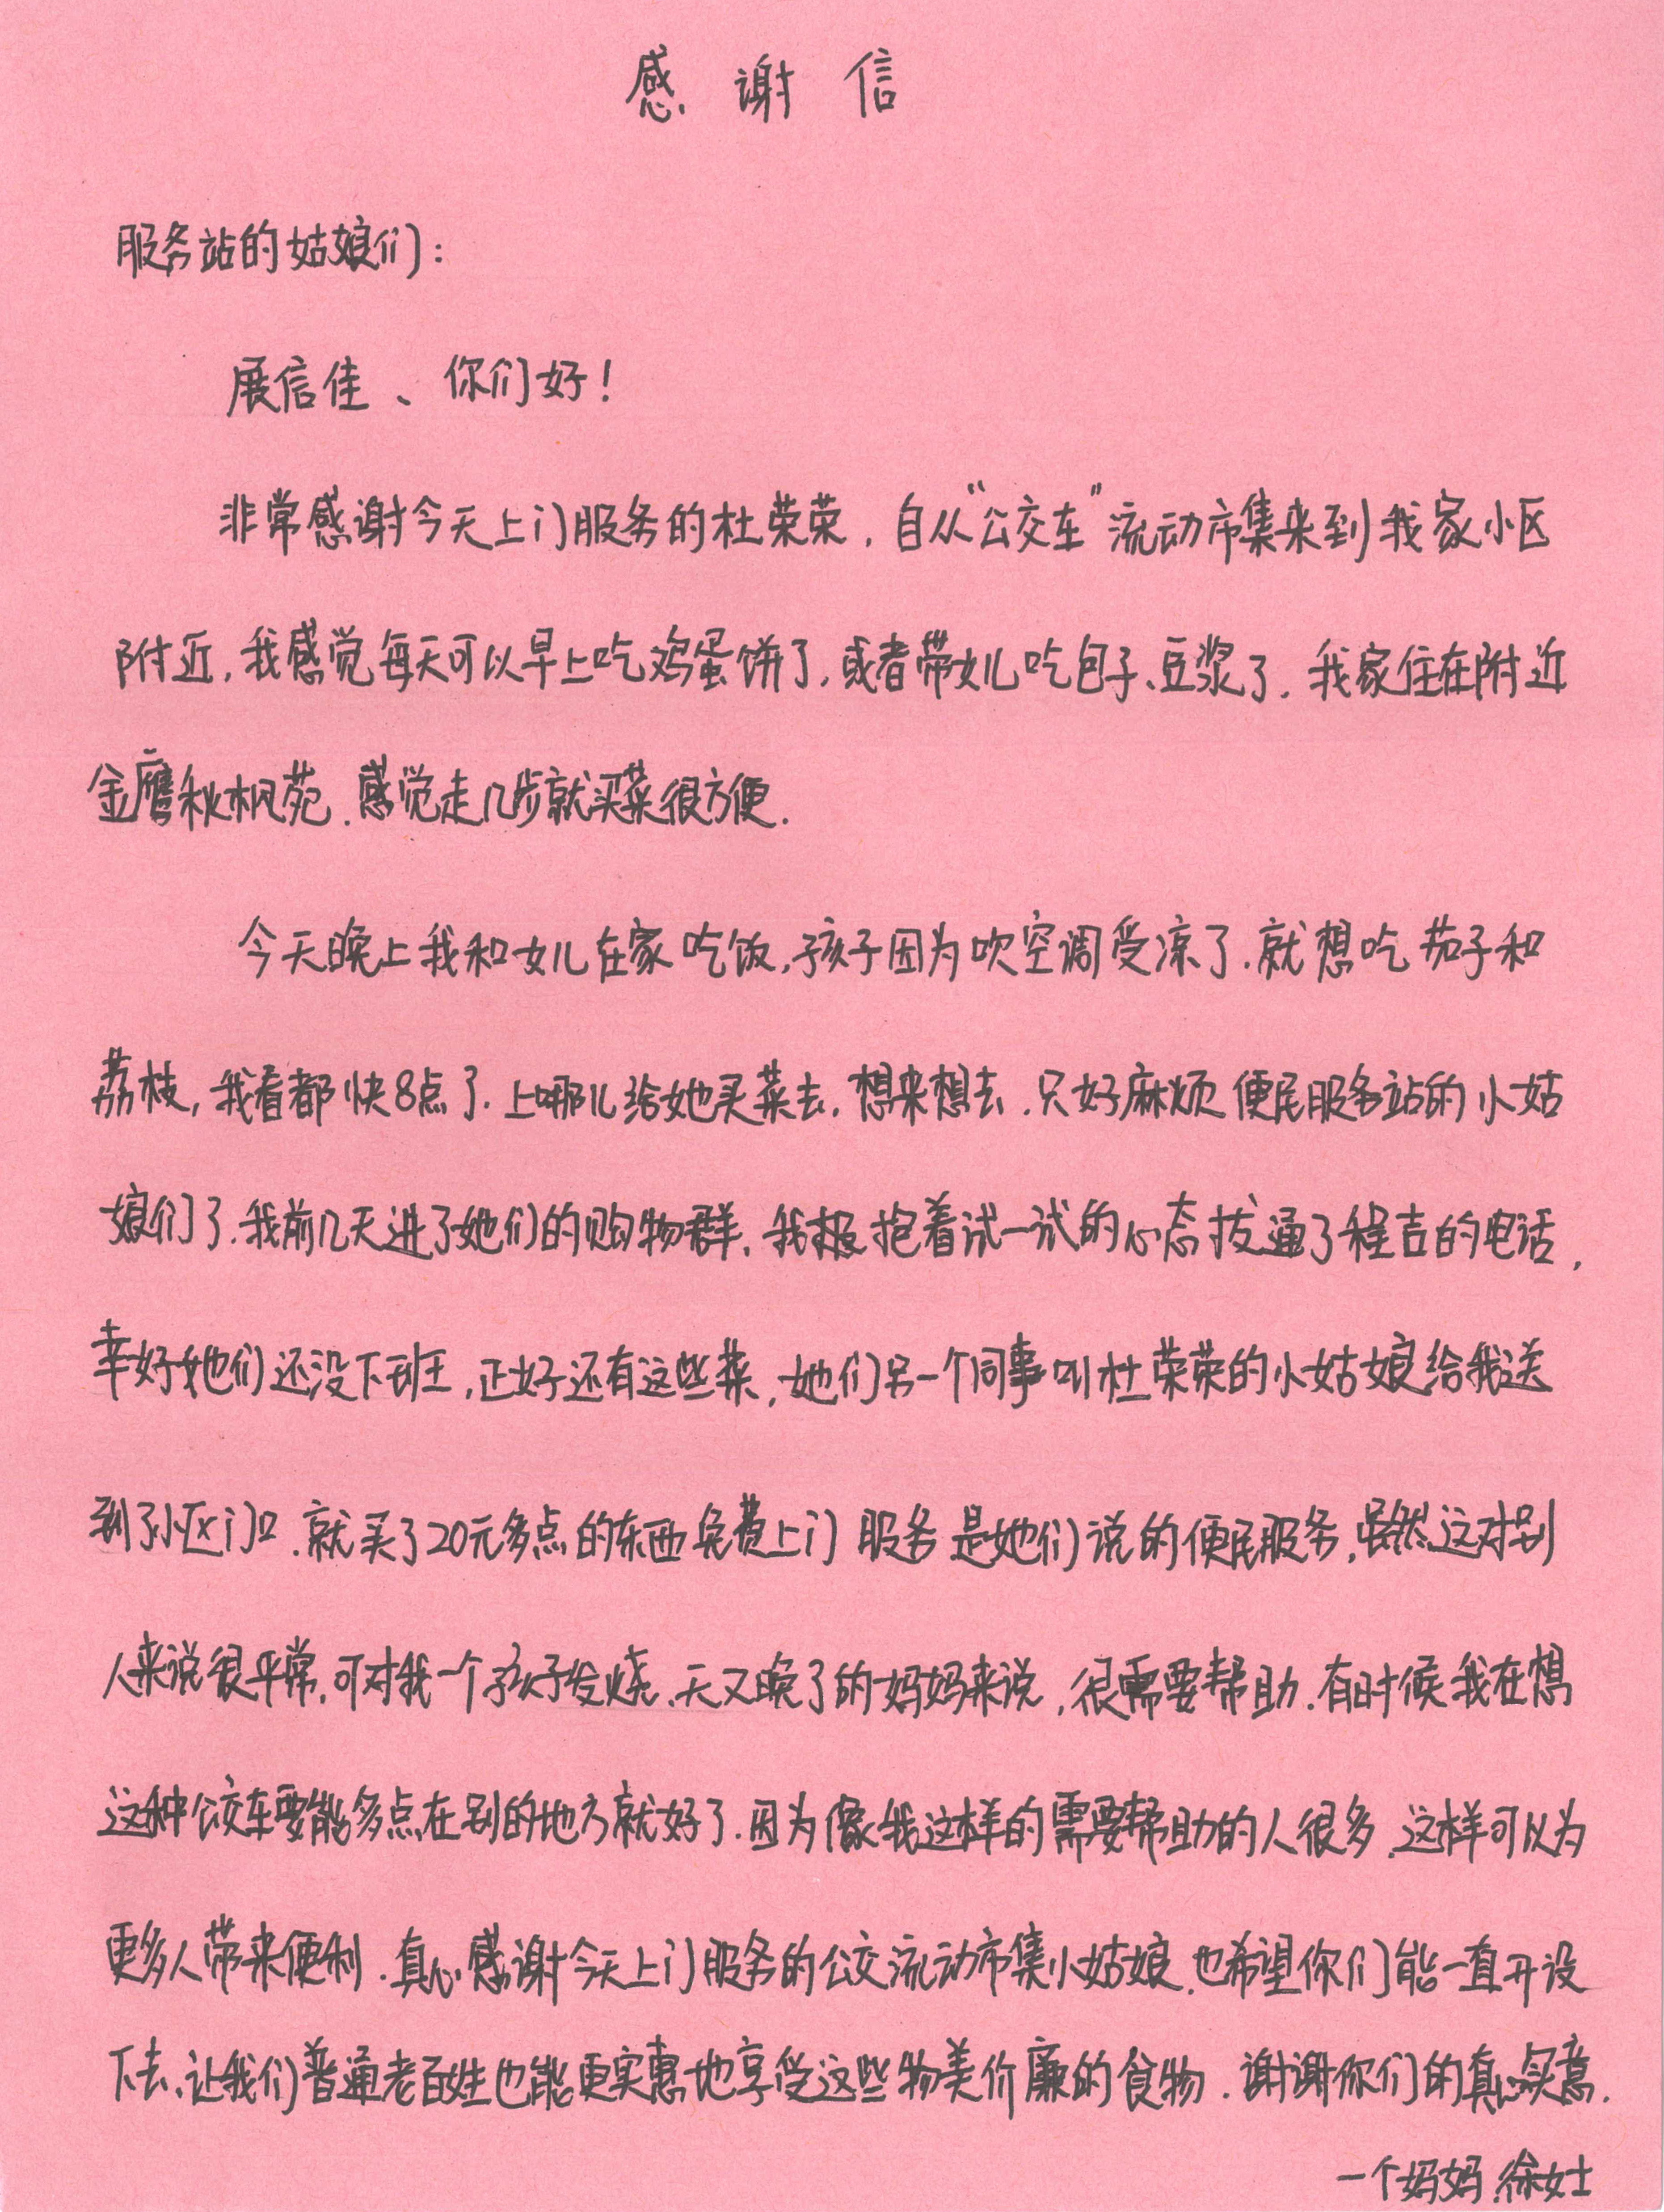 感谢信
服务站的姑娘们：
展信佳、你们好！
非常感谢今天上门服务的杜荣荣，自从“公交车”流动市集来到我家小区
附近，我感觉每天可以早上吃鸡蛋饼了，或者带女儿吃包子、豆浆了．我家住在附近
金鹰秋枫苑．感觉走几步就买菜很方便．
今天晚上我和女儿在家吃饭，孩子因为吹空调受凉了．就想吃茄子和
荔枝，我看都快8点了．上哪儿给她买菜去．想来想去．只好麻烦便民服务站的小姑
娘们了．我前几天进了她们的购物群．我报抱着试一试的心态拨通了程吉的电话，
幸好她们还没下班，正好还有这些菜，她们另一个同事叫杜荣荣的小姑娘给我送
到了小区门口．就买了20元多点的东西免费上门服务是她们说的便民服务，虽然这对别
人来说很平常，可对我一个孩子发烧、天又晚了的妈妈来说，很需要帮助．有时候我在想
这种公交车要能多点在别的地方就好了．因为像我这样的需要帮助的人很多．这样可以为
更多人带来便利．真心感谢今天上门服务的公交流动市集小姑娘．也希望你们能一直开设
下去、让我们普通老百姓也能更实惠地享受这些物美价廉的食物．谢谢你们的真心实意．
一个妈妈．徐女士